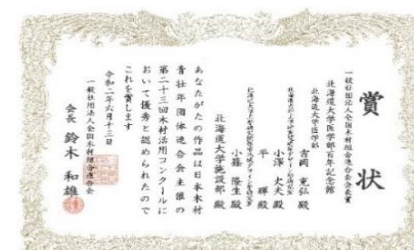 賞状
一般社団法人全国木材組合連合会会長賞
北海道大学医学部百年記念館
北海道大学医学部
吉岡 充弘 殿
小澤 丈夫 殿
平 輝 殿
小篠 隆生 殿
北海道大学施設部 殿
あなたがたの作品は日本木材
青壮年団体連合会主催の
第二十三回木材活用コンクールに
おいて優秀と認められたので
これを賞します
令和二年六月十二日
一般社団法人全国木材組合連合会
会長 鈴木 和雄